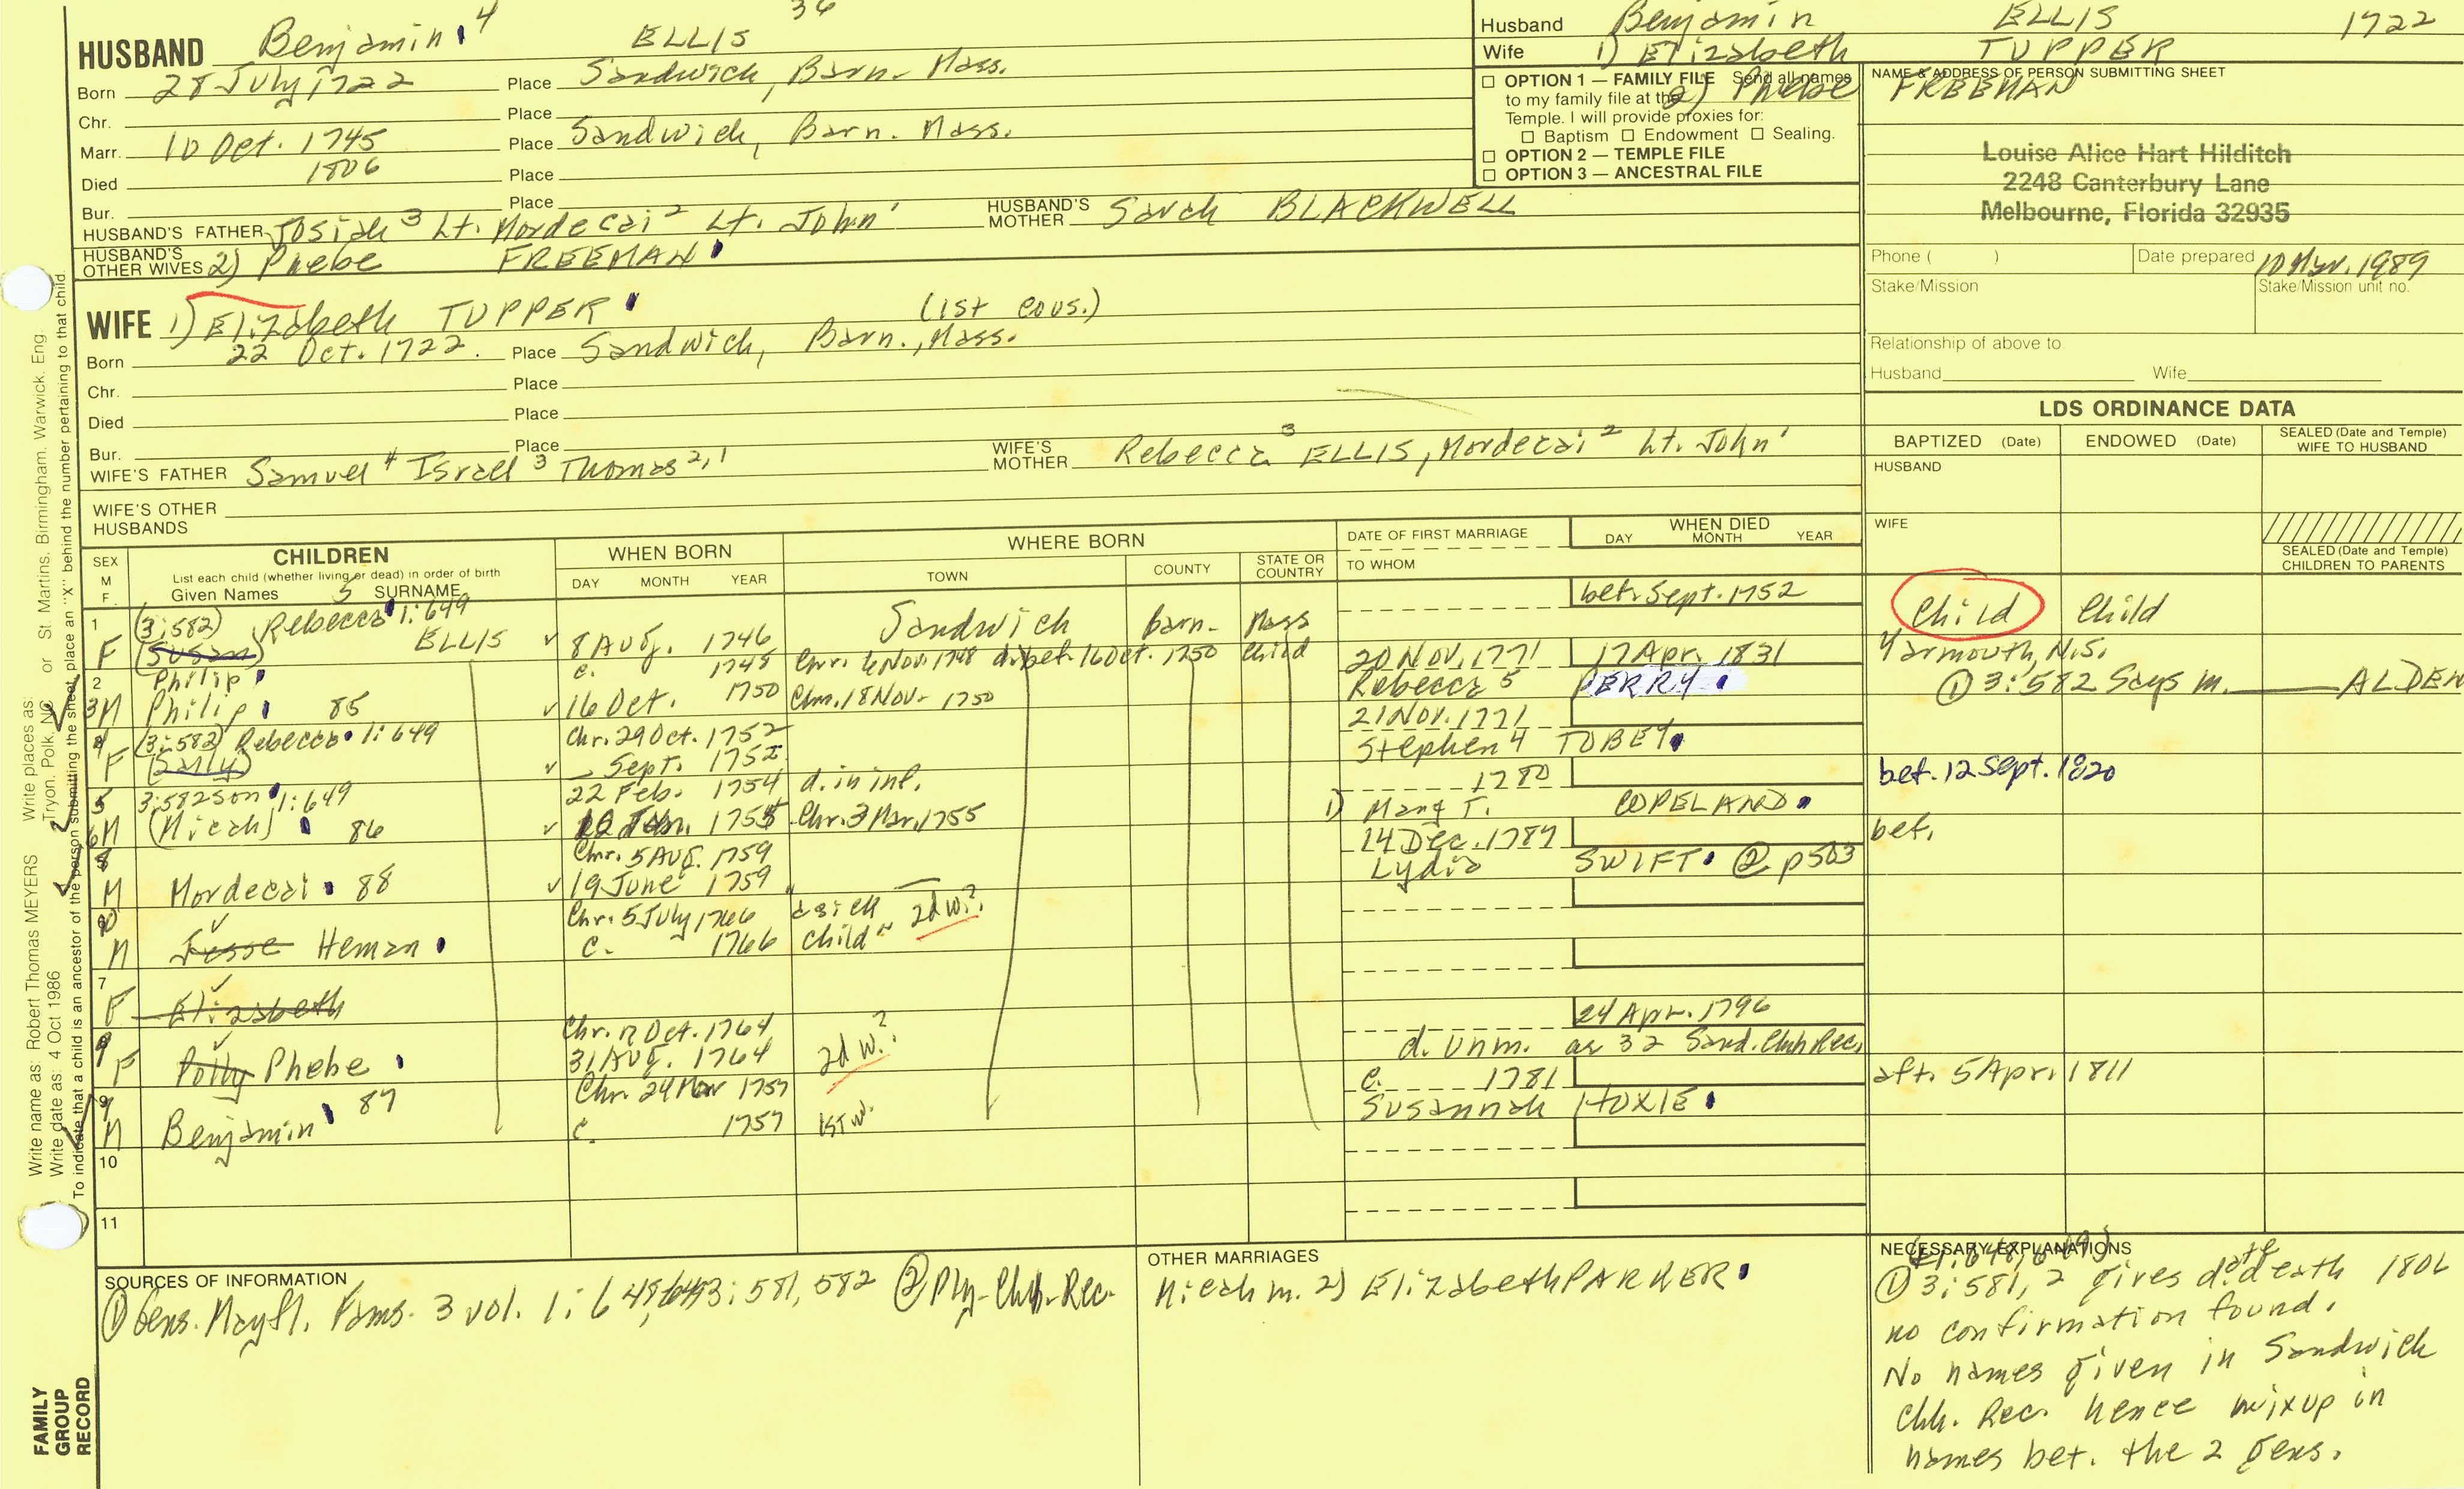 36
HUSBAND Benjamin 4 ELLIS
Born 28 July 1722 Place Sandwich, Barn. Mass.
Chr. Place
Marr. 10 Oct. 1745 Place Sandwich, Barn. Mass.
Died 1806 Place
Bur. Place
HUSBAND'S FATHER Josiah 3 Lt. Mordecai 2 Lt. John 1 HUSBAND'S MOTHER Sarah BLACKWELL
HUSBAND'S OTHER WIVES 2) Phebe FREEMAN
WIFE 1) Elizabeth TUPPER (1st cous.)
Born 22 Oct. 1722. Place Sandwich, Barn., Mass.
Chr. Place
Died Place
Bur. Place
WIFE'S FATHER Samuel 4 Israel 3 Thomas 2,1 WIFE'S MOTHER Rebecca 3 ELLIS, Mordecai 2 Lt. John 1
WIFE'S OTHER HUSBANDS
Husband Benjamin ELLIS 1722
Wife 1) Elizabeth TUPPER
2) Phebe FREEMAN
OPTION 1 — FAMILY FILE Send all names
to my family file at the
Temple. I will provide proxies for:
Baptism Endowment Sealing.
OPTION 2 — TEMPLE FILE
OPTION 3 — ANCESTRAL FILE
NAME & ADDRESS OF PERSON SUBMITTING SHEET
Louise Alice Hart Hilditch
2248 Canterbury Lane
Melbourne, Florida 32935
Phone ( ) Date prepared 10 Apr. 1989
Stake/Mission Stake/Mission unit no.
Relationship of above to
Husband Wife
LDS ORDINANCE DATA
BAPTIZED (Date) ENDOWED (Date) SEALED (Date and Temple) WIFE TO HUSBAND
HUSBAND
WIFE
SEALED (Date and Temple)
CHILDREN TO PARENTS
SEX M F
CHILDREN
List each child (whether living or dead) in order of birth
Given Names 5 SURNAME
WHEN BORN
DAY MONTH YEAR
WHERE BORN
TOWN COUNTY STATE OR COUNTRY
DATE OF FIRST MARRIAGE
TO WHOM
WHEN DIED
DAY MONTH YEAR
1 (3:582) Rebecca 1:649 bet. Sept. 1752
F (Susan) ELLIS 8 Aug. 1746 Sandwich Barn. Mass Child Child
2 Philip c. 1748 Chr. 6 Nov. 1748 d. bet. 16 Oct. 1750 Child 20 Nov. 1771 17 Apr. 1831 Yarmouth, N.S.
3 M Philip 85 16 Oct. 1750 Chr. 18 Nov. 1750 Rebecca 5 PERRY ① 3:582 Says m. ALDEN
4 (3:582) Rebecca 1:649 Chr. 29 Oct. 1752 21 Nov. 1771
F (Sally) Sept. 1752 Stephen 4 TOBEY
5 3:582 son 1:649 22 Feb. 1754 d. in inf. 1780 bet. 12 Sept. 1820
6 M (Micah) 86 1755 Chr. 3 Mar. 1755 1) Mary T. COPELAND
8 Chr. 5 Aug. 1759 14 Dec. 1787 bet.
M Mordecai 88 19 June 1759 Lydia SWIFT ② p503
Chr. 5 July 1766 a sick 2d w.?
M Jesse Heman c. 1766 child"
7
F Elizabeth
Chr. 12 Oct. 1764 24 Apr. 1796
9 F Polly Phebe 31 Aug. 1764 2d w.? d. unm. as 32 Sand. Chh Rec.
9 Chr. 24 Mar 1757 c. 1781 aft. 5 Apr. 1811
M Benjamin 87 c. 1757 1st w. Susannah HOXIE
10
11
SOURCES OF INFORMATION
① Gens. Mayfl. Fams. 3 vol. 1:648,649 3:581,582 ② Ply. Chh. Rec.
OTHER MARRIAGES
Micah m. 2) Elizabeth PARKER
NECESSARY EXPLANATIONS
(1:648,649)
① 3:581,2 gives date death 1806
no confirmation found.
No names given in Sandwich
Chh. Rec. hence mixup in
names bet. the 2 gens.
Write name as: Robert Thomas MEYERS Write places as: Tryon, Polk, NC or St. Martins, Birmingham, Warwick, Eng
Write date as: 4 Oct 1986
To indicate that a child is an ancestor of the person submitting the sheet, place an "X" behind the number pertaining to that child.
FAMILY
GROUP
RECORD